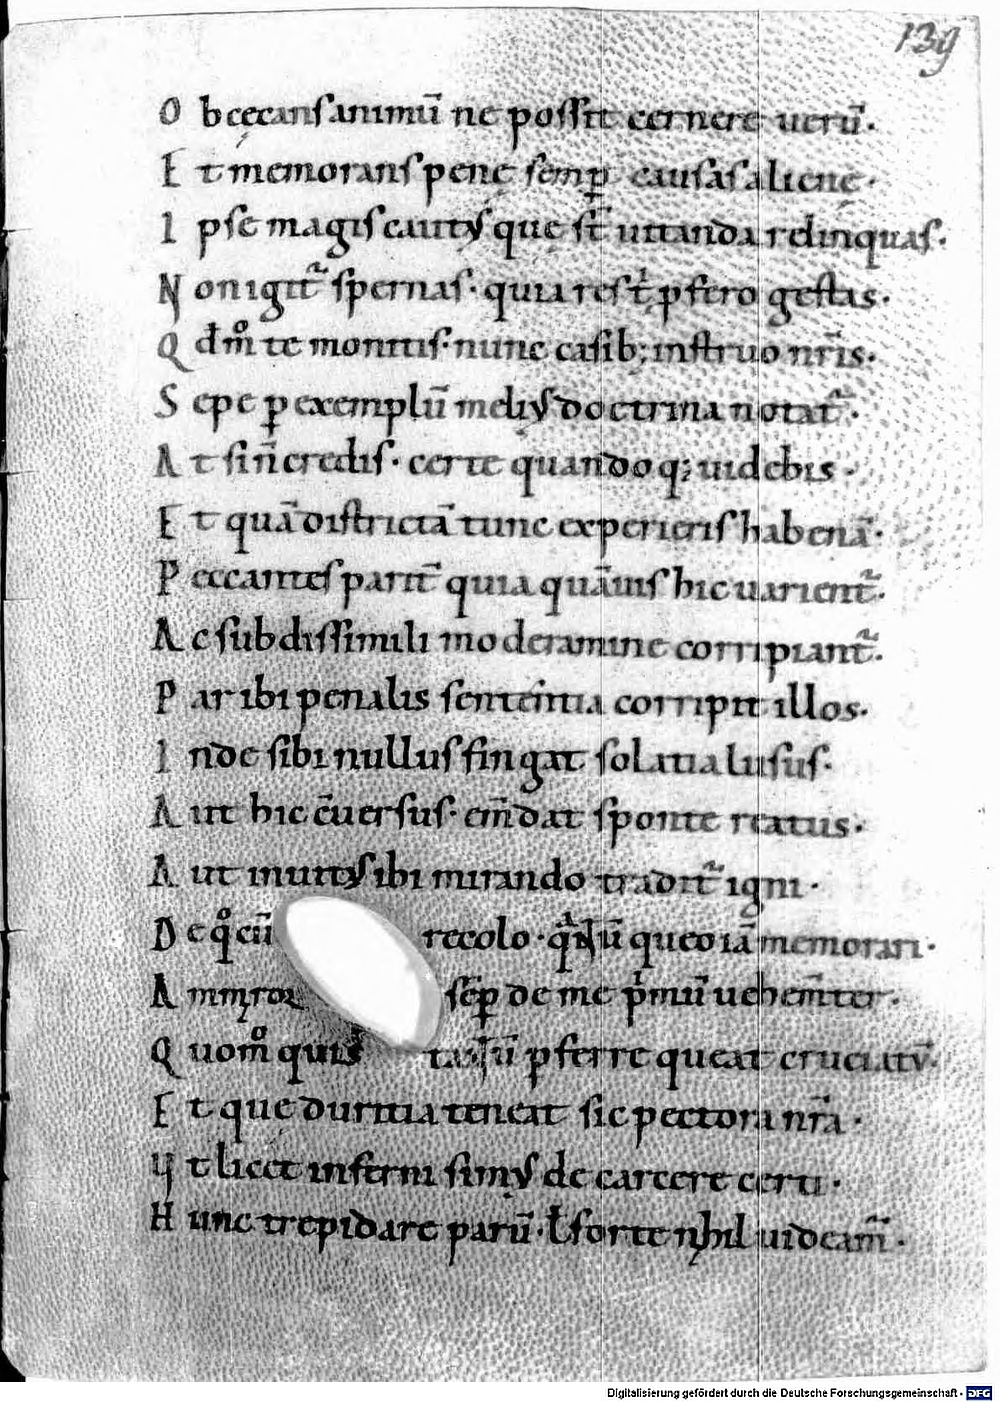 139
O bcęcans animū ne possit cernere uerū.
E t memorans penę semp̲ causas alienę.
I pse magis cautꝰ quę st̄ uitanda relinquas.
N on igit᷑ spernas. quia res t̄ pfero gestas.
Q dm̊ te monitis. nunc casib; instruo nr̄is.
S epe p̲ exemplū meliꝰ doctrina notat᷑.
A t si ñ credis. certe quandoq; uidebis.
E t quā districtā tunc experieris habenā.
P eccantes parit᷑ quia quāuis hic uarient᷑.
A c sub dissimili moderamine corripiant᷑.
P ar ibi penalis sententia corripit illos.
I nde sibi nullus fingat solatia lusus.
A ut hic c̄uersus. em̄dat sponte reatus.
A ut inuitꝰ ibi mirando tradit᷑ igni.
D e q̊ cū recolo. queo iā memorari.
A mmiror sēp̲ de me p̍mū uehem̄ter.
Q uom̊ quis pferre queat cruciatū.
E t que duritia teneat sic pectora nr̄a.
U t licet inferni simꝰ de carcere certi.
H unc trepidare parū. ł forte nihil uideam᷑.
Digitalisierung gefördert durch die Deutsche Forschungsgemeinschaft - DFG